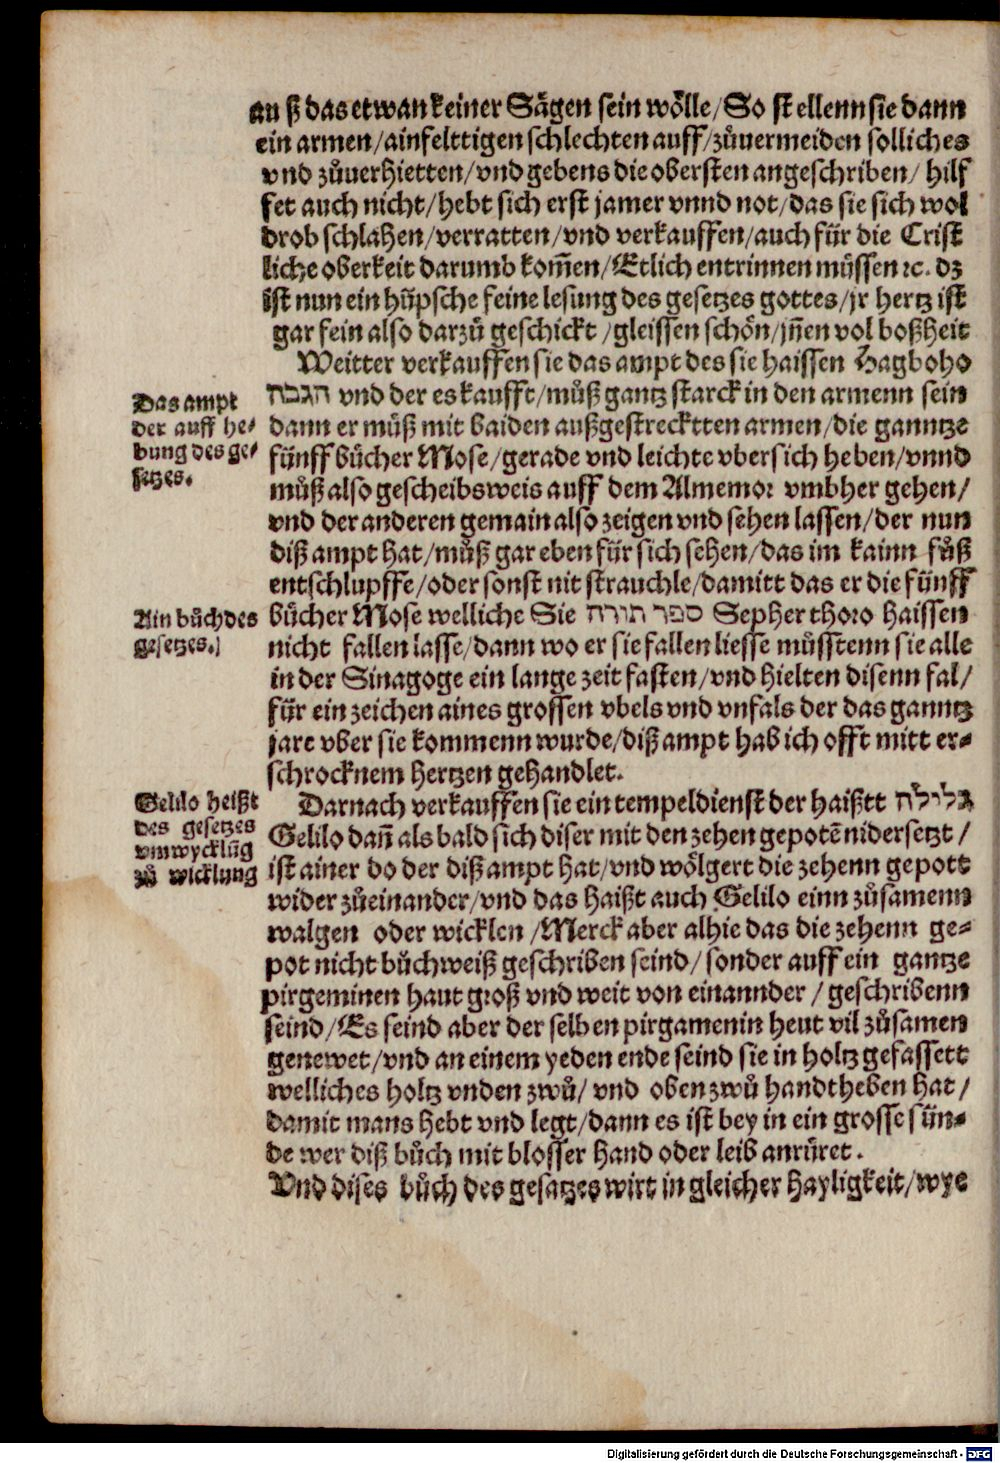 au ß das etwan keiner Sägen sein wölle/So st ellenn sie dann
ein armen/ainfelttigen schlechten auff/zůuermeiden solliches
vnd zůuerhietten/vnd gebens die obersten angeschriben/ hilf
fet auch nicht/hebt sich erst jamer vnnd not/das sie sich wol
drob schlahen/verratten/vnd verkauffen/auch für die Crist
liche oberkeit darumb kom̃en/Etlich entrinnen müssen ꝛc. dz
ist nun ein hüpsche feine lesung des gesetzes gottes/jr hertz ist
gar fein also darzů geschickt /gleissen schön/jn̄en vol boßheit
Weitter verkauffen sie das ampt des sie haissen Hagboho
הגבה vnd der es kaufft/můß gantz starck in den armenn sein
Das ampt
der auff he-
bung des ge-
setzes.
dann er můß mit baiden außgestrecktten armen/die ganntze
fünff bücher Mose/gerade vnd leichte vbersich heben/vnnd
můß also gescheibsweis auff dem Almemor vmbher gehen/
vnd der anderen gemain also zeigen vnd sehen lassen/der nun
diß ampt hat/můß gar eben für sich sehen/das im kainn fůß
entschlupffe/oder sonst nit strauchle/damitt das er die fünff
bücher Mose welliche Sie ספר תורה Sepher thoro haissen
Ain bůch des
gesetzes.
nicht fallen lasse/dann wo er sie fallen liesse müsstenn sie alle
in der Sinagoge ein lange zeit fasten/vnd hielten disenn fal/
für ein zeichen aines grossen vbels vnd vnfals der das ganntz
jare vber sie kommenn wurde/diß ampt hab ich offt mitt er-
schrocknem hertzen gehandlet.
Darnach verkauffen sie ein tempeldienst der haißtt גלילה
Gelilo heißt
des gesetzes
vmwycklūg
zů wicklung
Gelilo dañ als bald sich diser mit den zehen gepotē nidersetzt /
ist ainer do der diß ampt hat/vnd wölgert die zehenn gepott
wider zůeinander/vnd das haißt auch Gelilo einn zůsamenn
walgen oder wicklen /Merck aber alhie das die zehenn ge-
pot nicht bůchweiß geschriben seind/ sonder auff ein gantze
pirgeminen haut groß vnd weit von einannder / geschribenn
seind/Es seind aber der selben pirgamenin heut vil zůsamen
genewet/vnd an einem yeden ende seind sie in holtz gefassett
welliches holtz vnden zwů/ vnd oben zwů handtheben hat/
damit mans hebt vnd legt/dann es ist bey in ein grosse sün-
de wer diß bůch mit blosser hand oder leib anrüret.
Vnd dises bůch des gesatzes wirt in gleicher hayligkeit/wye
Digitalisierung gefördert durch die Deutsche Forschungsgemeinschaft - DFG